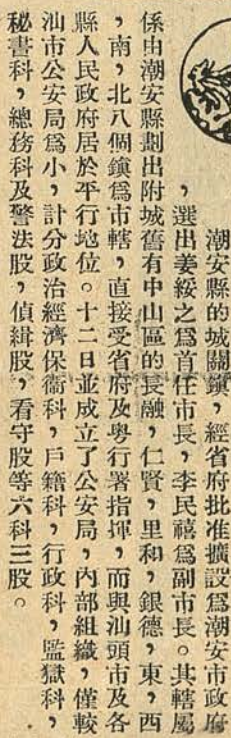 潮安縣的城關鎮，經省府批准擴設爲潮安市政府
，選出姜綏之爲首任市長，李民禧爲副市長。其轄屬
係由潮安縣劃出附城舊有中山區的長融，仁賢，里和，銀德，東，西
，南，北八個鎮爲市轄，直接受省府及粤行署指揮，而與汕頭市及各
縣人民政府居於平行地位。十二日並成立了公安局，內部組織，僅較
汕市公安局爲小，計分政治經濟保衞科，戶籍科，行政科，監獄科，
秘書科，總務科及警法股，偵緝股，看守股等六科三股。